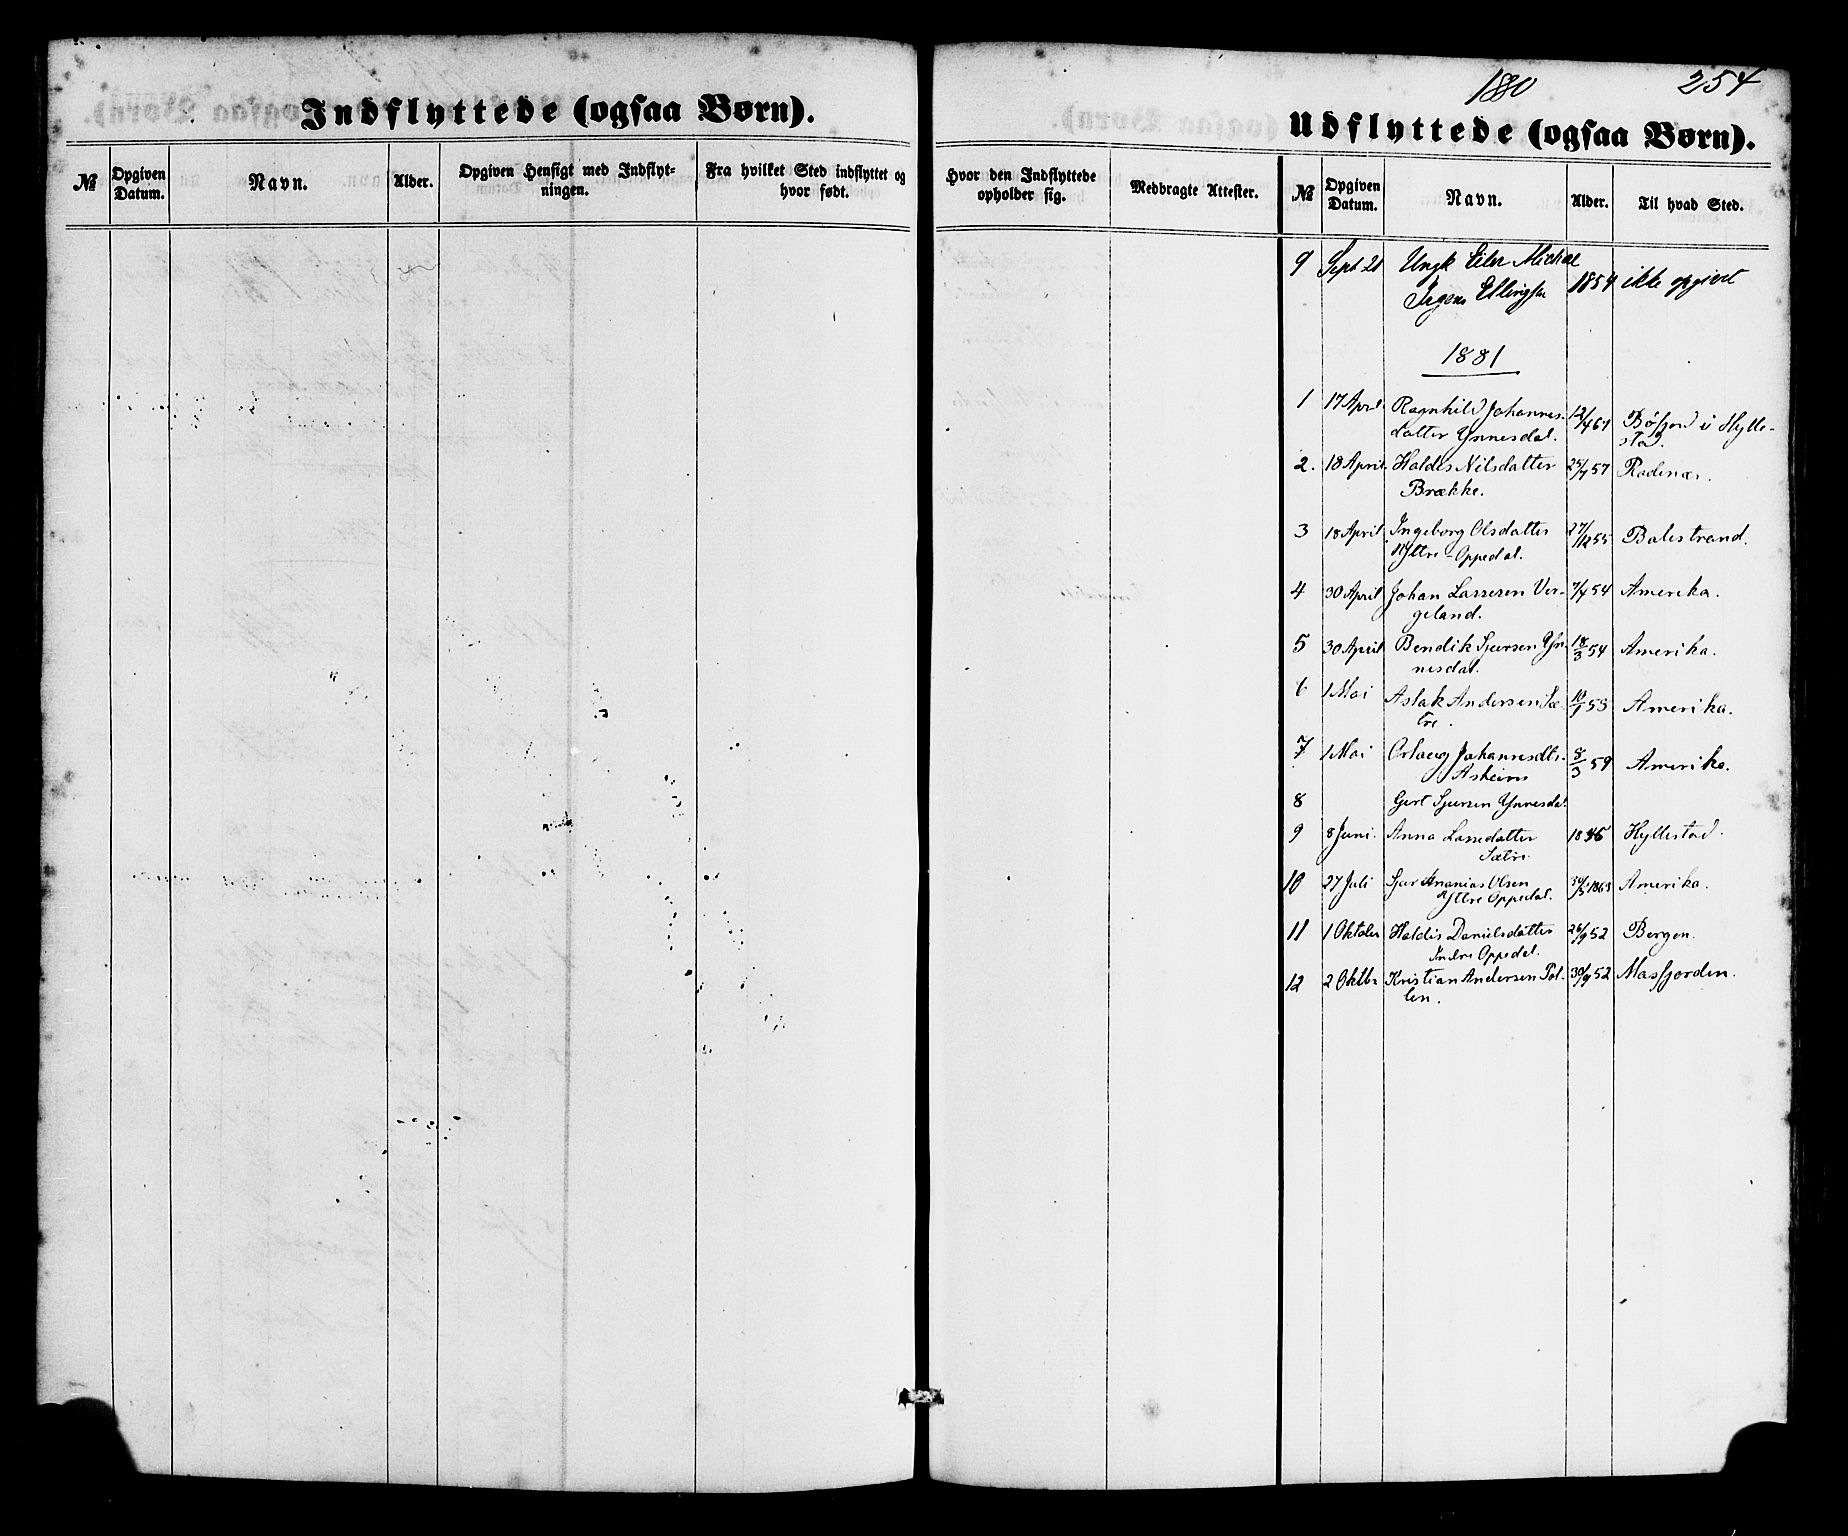 Indflyttede (ogsaa Børn).
№ Opgiven Datum. Navn. Alder. Opgiven Hensigt med Indflytningen. Fra hvilket Sted indflyttet og hvor født.
1880 254
Udflyttede (ogsaa Børn).
Hvor den Indflyttede opholder sig. Medbragte Attester. № Opgiven Datum. Navn. Alder. Til hvad Sted.
9 Sept 21 Ungk Eiler Michael 1854 ikke opgivet
Ellingsen
1881
1 17 April Ragnhild Johannes- 12/4 61 Bøfjord i Hylle-
datter Ynnesdal. stad.
2. 18 April Haldis Nilsdatter 25/7 57 Rodenæs.
Brække.
3 18 April Ingeborg Olsdatter 27/12 55 Balestrand.
Yttre-Oppedal.
4 30 April Johan Larsesen Ver- 7/7 54 Amerika.
geland.
5 30 April Bendik Sjursen Yn- 18/3 54 Amerika.
nesdal.
6 1 Mai Aslak Andersen Sæ- 10/1 53 Amerika.
tre.
7 1 Mai Johannesdtr. 8/3 59 Amerika.
Asheim
8 Gjert Sjursen Ynnesdal
9 8 Juni. Anna Larsdatter 1845 Hyllestad.
Sætre
10 27 Juli Sjur Ananias Olsen 30/5 1863 Amerika.
Yttre Oppedal.
11 1 Oktober Haldis Danielsdatter 26/9 52 Bergen.
Indre Oppedal.
12 2 Oktbr Kristian Andersen Pol- 30/9 52 Masfjorden.
len.